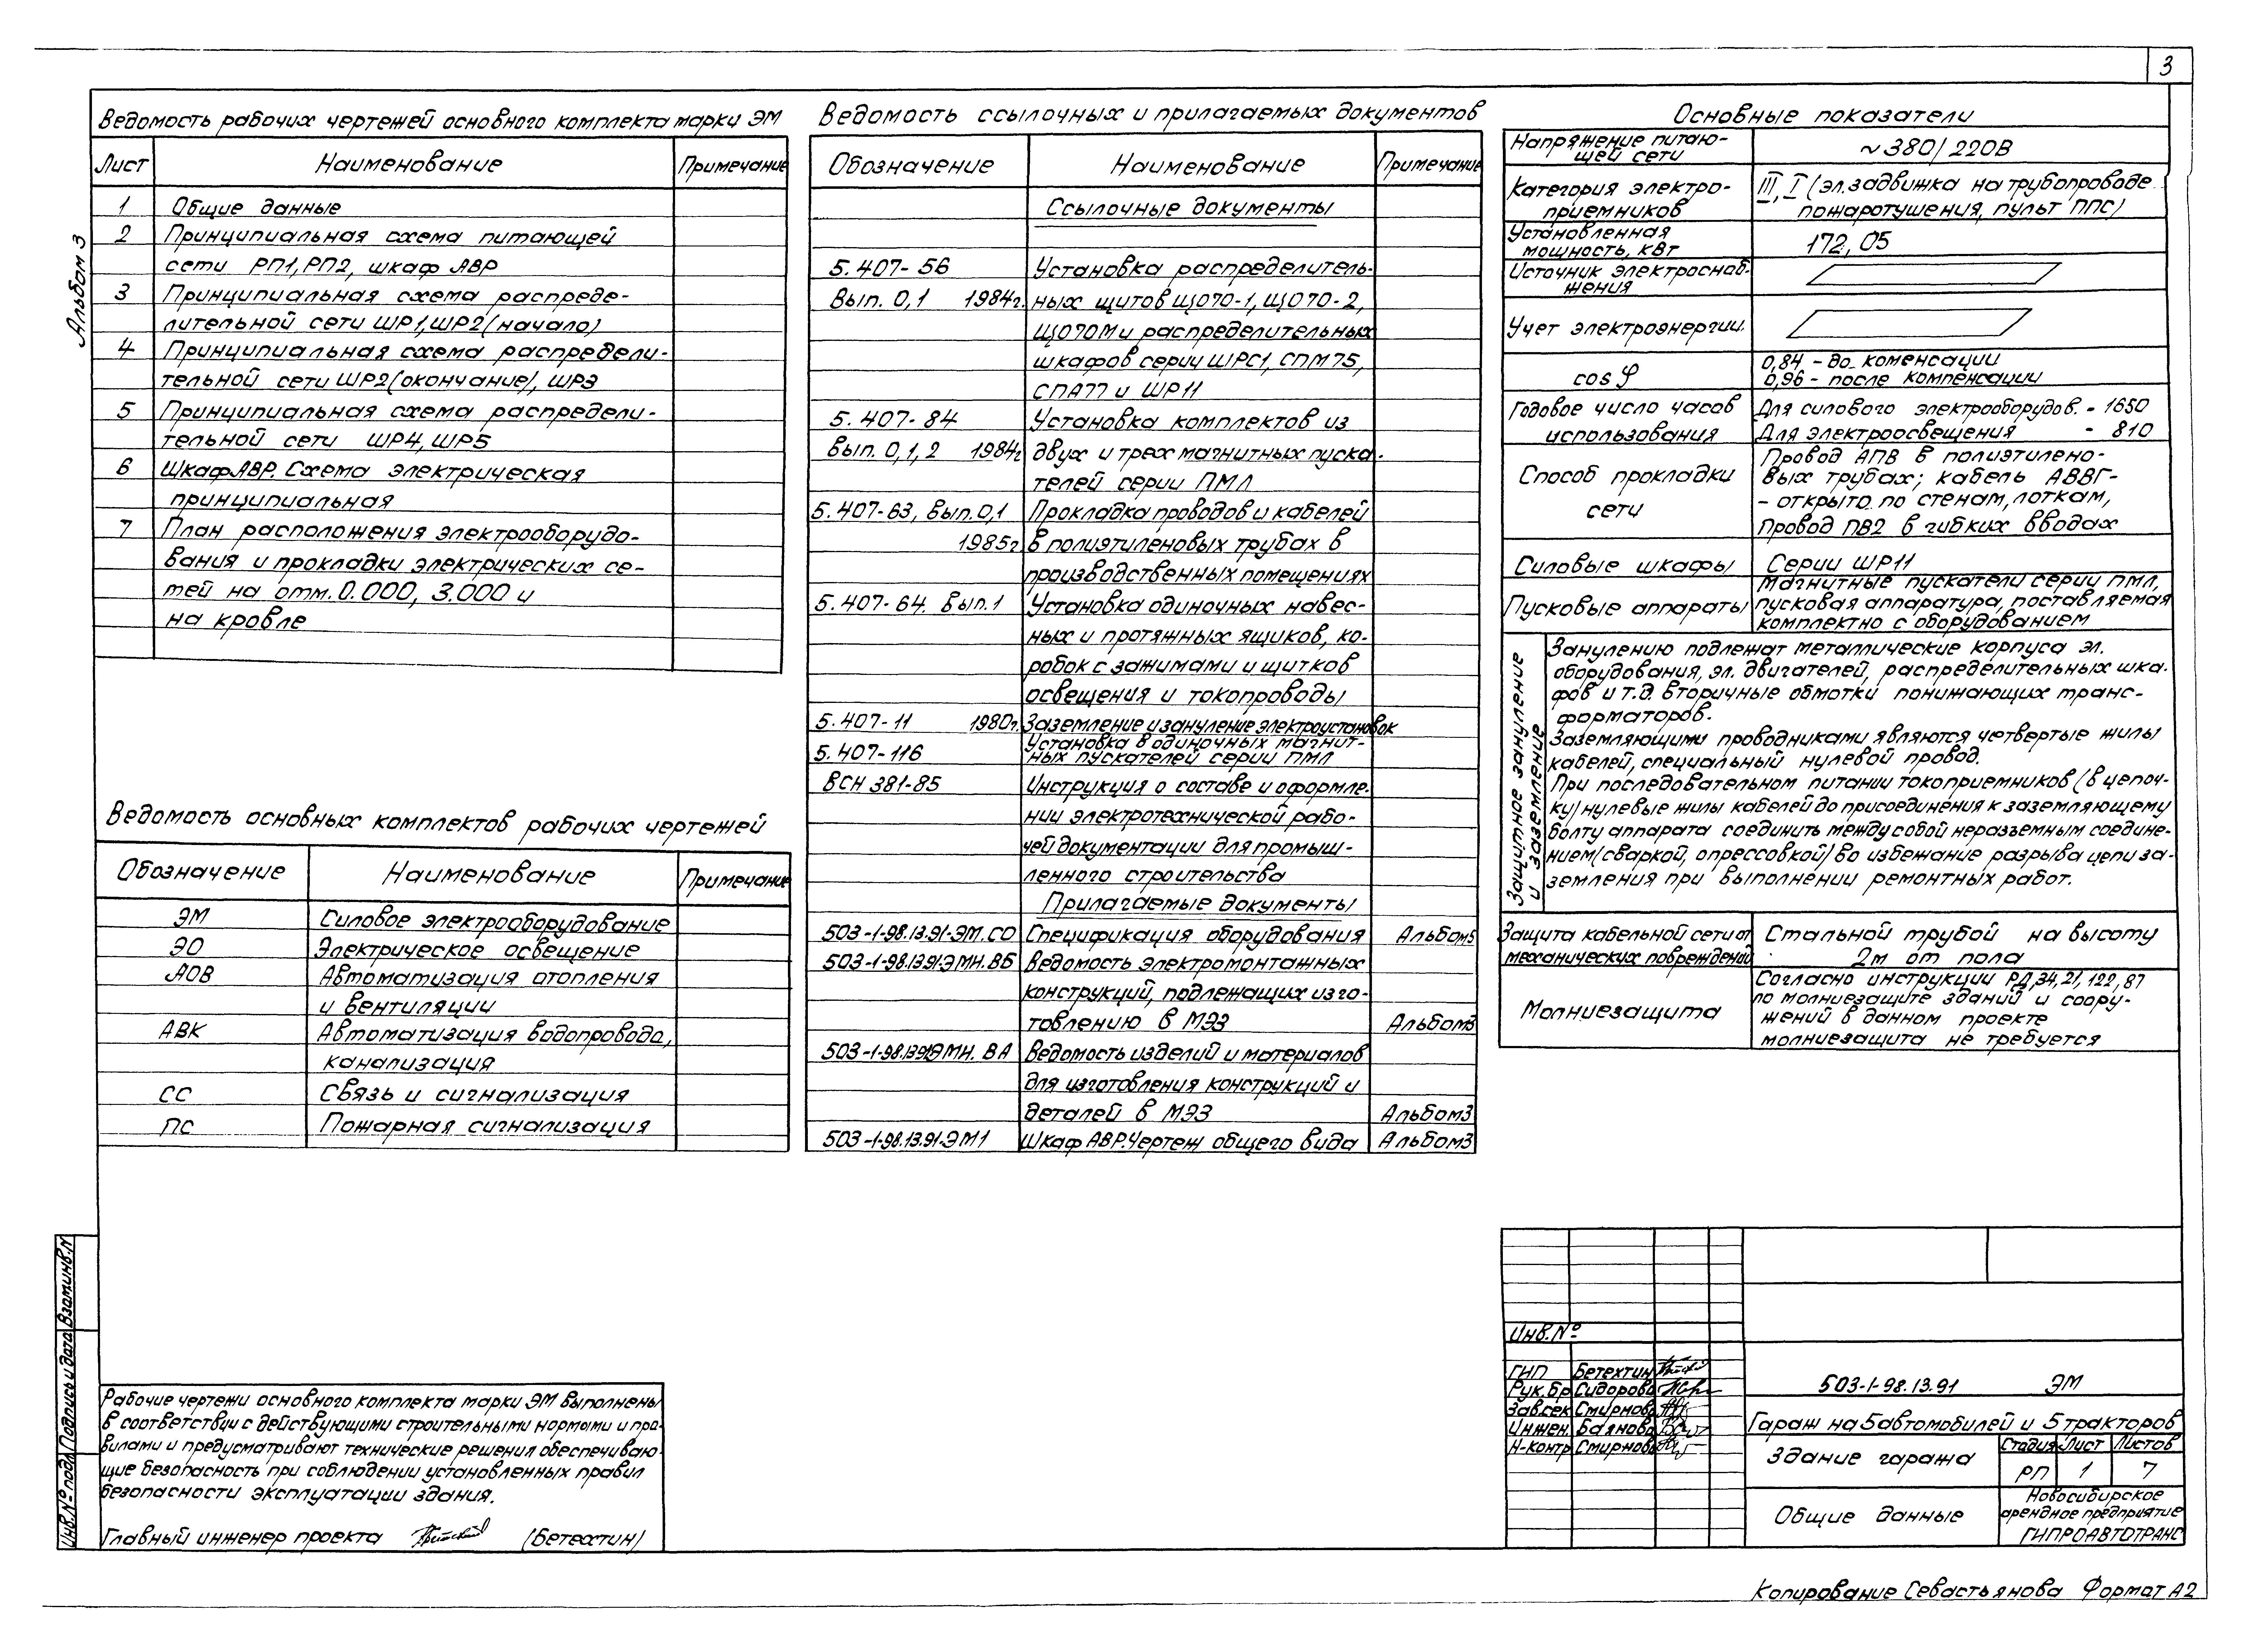 3
Альбом 3
Ведомость рабочих чертежей основного комплекта марки ЭМ
Лист Наименование Примечание
1 Общие данные
2 Принципиальная схема питающей
сети РП1, РП2, шкаф АВР
3 Принципиальная схема распреде-
лительной сети ШР1, ШР2 (начало)
4 Принципиальная схема распредели-
тельной сети ШР2 (окончание), ШР3
5 Принципиальная схема распредели-
тельной сети ШР4, ШР5
6 Шкаф АВР. Схема электрическая
принципиальная
7 План расположения электрооборудо-
вания и прокладки электрических се-
тей на отм. 0.000, 3.000 и
на кровле
Ведомость основных комплектов рабочих чертежей
Обозначение Наименование Примечание
ЭМ Силовое электрооборудование
ЭО Электрическое освещение
АОВ Автоматизация отопления
и вентиляции
АВК Автоматизация водопровода,
канализация
СС Связь и сигнализация
ПС Пожарная сигнализация
Рабочие чертежи основного комплекта марки ЭМ выполнены
в соответствии с действующими строительными нормами и пра-
вилами и предусматривают технические решения обеспечиваю-
щие безопасность при соблюдении установленных правил
безопасности эксплуатации здания.
Главный инженер проекта (Бетехтин)
Ведомость ссылочных и прилагаемых документов
Обозначение Наименование Примечание
Ссылочные документы
5.407-56 Установка распределитель-
Вып. 0,1 1984г. ных щитов ЩО70-1, ЩО70-2,
ЩО70М и распределительных
шкафов серии ШРС1, СПМ75,
СПА77 и ШР11
5.407-84 Установка комплектов из
Вып. 0,1,2 1984г двух и трех магнитных пуска-
телей серии ПМЛ
5.407-63, Вып. 0,1 Прокладка проводов и кабелей
1985г. в полиэтиленовых трубах в
производственных помещениях
5.407-64. Вып.1 Установка одиночных навес-
ных и протяжных ящиков, ко-
робок с зажимами и щитков
освещения и токопроводы
5.407-11 1980г. Заземление и зануление электроустановок
5.407-116 Установка в одиночных магнит-
ных пускателей серии ПМЛ
ВСН 381-85 Инструкция о составе и оформле-
нии электротехнической рабо-
чей документации для промыш-
ленного строительства
Прилагаемые документы
503-1-98.13.91-ЭМ.СО Спецификация оборудования Альбом5
503-1-98.13.91-ЭМН.ВБ Ведомость электромонтажных
конструкций, подлежащих изго-
товлению в МЭЗ Альбом3
503-1-98.13.91ЭМН.ВА Ведомость изделий и материалов
для изготовления конструкций и
деталей в МЭЗ Альбом3
503-1-98.13.91-ЭМ1 Шкаф АВР. Чертеж общего вида Альбом3
Основные показатели
Напряжение питаю-
щей сети ~380/220В
Категория электро-
приемников III, I (эл.задвижка на трубопроводе
пожаротушения, пульт ППС)
Установленная
мощность, кВт 172,05
Источник электроснаб-
жения
Учет электроэнергии.
cos φ 0,84 - до коменсации
0,96 - после компенсации
Годовое число часов
использования Для силового электрооборудов. - 1650
Для электроосвещения - 810
Способ прокладки
сети Провод АПВ в полиэтилено-
вых трубах; кабель АВВГ-
- открыто по стенам, лоткам,
провод ПВ2 в гибких вводах
Силовые шкафы Серии ШР11
Пусковые аппараты Магнитные пускатели серии ПМЛ,
пусковая аппаратура, поставляемая
комплектно с оборудованием
Защитное зануление
и заземление
Занулению подлежат металлические корпуса эл.
оборудования, эл. двигателей, распределительных шка-
фов и т.д. вторичные обмотки понижающих транс-
форматоров.
Заземляющими проводниками являются четвертые жилы
кабелей, специальный нулевой провод.
При последовательном питании токоприемников (в цепоч-
ку) нулевые жилы кабелей до присоединения к заземляющему
болту аппарата соединить между собой неразъемным соедине-
нием (сваркой, опрессовкой) во избежание разрыва цепи за-
земления при выполнении ремонтных работ.
Защита кабельной сети от
механических повреждений Стальной трубой на высоту
2м от пола
Молниезащита Согласно инструкции РД,34,21,122,87
по молниезащите зданий и соору-
жений в данном проекте
молниезащита не требуется
Инв.№
ГИП Бетехтин
Рук.бр Сидорова
Зав.сек Смирнова
Инжен. Баянова
Н-контр Смирнова
503-1-98.13.91 ЭМ
Гараж на 5 автомобилей и 5 тракторов
Здание гаража Стадия Лист Листов
РП 1 7
Общие данные
Новосибирское
арендное предприятие
ГИПРОАВТОТРАНС
Взам.инв.N
Подпись и дата
Инв.№ подл
Копирование Севастьянова Формат А2